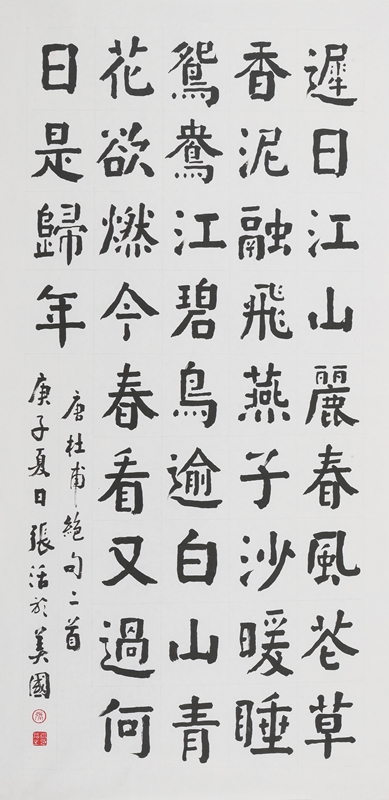 遲日江山麗春風花草
香泥融飛燕子沙暖睡
鴛鴦江碧鳥逾白山青
花欲燃今春看又過何
日是歸年
唐杜甫絕句二首
庚子夏日張活於美國